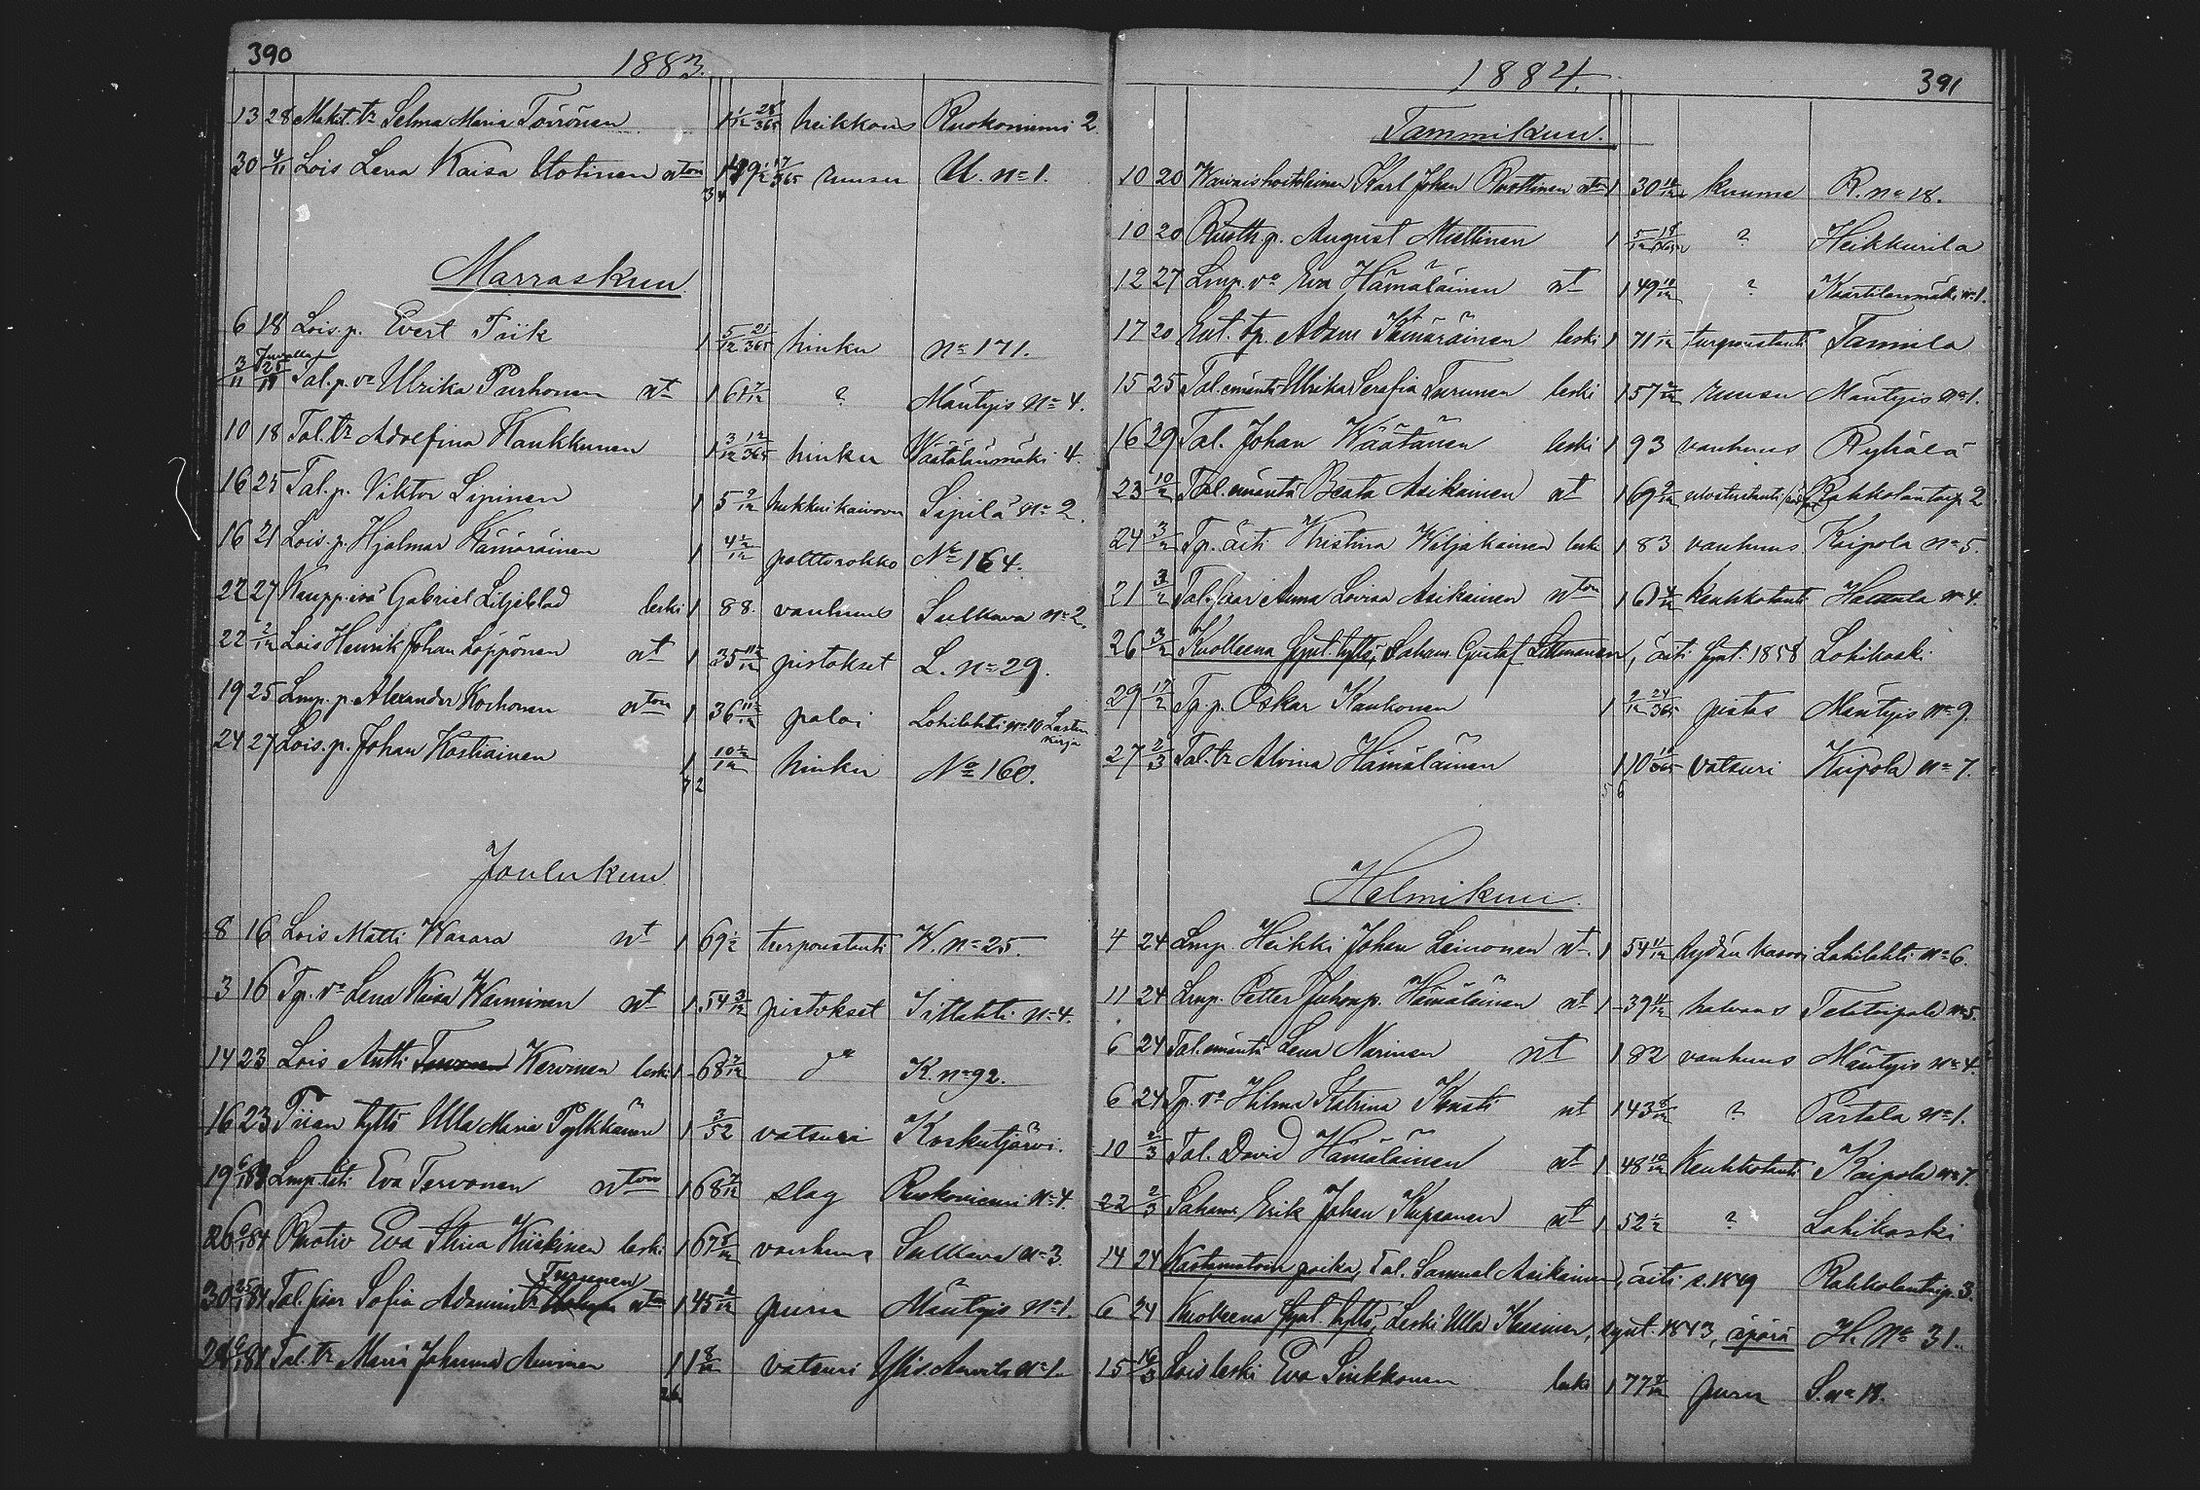 390
1883.
13 28 Mäkit. tr Selma Maria Törrönen 1 1/12 28/365 heikkous Ruokoniemi 2
30 4/11 Lois Lena Kaisa Utotinen nton 1 49 1/2 17/365 ruusu U. no 1.
3 4
Marraskuu
6 18 Lois. p. Evert Tiik 1 5/12 21/365 hinku no 171.
3/11 25/11 Tal. p. va Ulrika Purhonen nt 1 61 7/12 ? Mäntyis No 4.
10 18 Tal. tr Adolfina Kaukkunen 1 3/12 12/365 hinku Väätälänmäki 4.
16 25 Tal. p. Viktor Sipinen 1 5 9/12 hukkui kaivoon Sipilä No 2.
16 21 Lois. p. Hjalmar Hämäräinen 1 4 1/2/12 polttorokko No 164.
22 27 Kaupp. isä Gabriel Liljeblad leski 1 88. vanhuus Sulkava no 2.
22 2/12 Lois Henrik Johan Löppönen nt 1 35 11/12 pistokset L. no 29.
19 25 Lmp. p. Alexander Korhonen nton 1 36 11/12 paloi Lohilahti no 10 Lasten kirja
24 27 Lois. p. Johan Kostiainen 1 10 1/2/12 hinku No 160.
7 2
Joulukuu
8 16 Lois Matti Warara nt 1 69 1/2 turpoustauti K. no 25.
3 16 Tp. va Lena Kaisa Wanninen nt 1 54 3/12 pistokset Iitlahti no 4.
14 23 Lois Antti Kervinen leski 1 68 7/12 do K. no 92.
16 23 Piian tyttö Ulla Maria Pylkkänen 1 3/52 vatsuri Koskutjärvi.
19 6/1 84 Lmp. äiti Eva Tervonen nton 1 68 7/12 slag Ruokoniemi no 4.
26 6/1 84 Ruotiv Eva Stina Kiiskinen leski 1 67 8/12 vanhuus Sulkava no 3
30 25/1 84 Tal. Sofia Adamintr Turunen nton 1 45 2/12 puru Mäntyis no 1.
24 6/1 84 Tal. tr Maria Johanna Auvinen 1 1 8/12 vatsuri Ylis Auvila no 1.
1884.
391
Tammikuu.
10 20 Karl Johan Ruottinen nton 1 30 10/12 kuume R. no 18.
10 20 Ruoth p. August Miettinen 1 5/12 ? Heikkurila
12 27 Lmp. va Eva Hämäläinen nt 1 49 10/12 ? Kaartilanmäki no 1.
17 20 Ent. tp. Adam Hämäräinen leski 1 71 1/12 turpoustauti Tannila
15 25 Tal. emäntä Ulrika Serafia Turunen leski 1 57 2/12 ruusu Mäntyis no 1.
16 29 Tal. Johan Wäätänen leski 1 93 vanhuus Ryhälä
23 10/2 Tal. emäntä Beata Asikainen nt 1 69 9/12 Rahkolantaip. 2
24 3/2 Tp. äiti Kristina Wiljakainen leski 1 83 vanhuus Kaipola no 5.
21 3/2 Tal. Anna Lovisa Asikainen nton 1 61 4/12 keuhkotauti Halttula no 4.
26 3/2 Kuolleena synt. tyttö, Saham. Gustaf Littmanen, äiti synt. 1858 Lohikoski
29 17/2 Tp. p. Oskar Kaukonen 1 9/12 24/365 pistos Mäntyis no 9.
27 2/3 Tal. tr Alvina Hämäläinen 1 10 11/365 vatsuri Kaipola no 7.
5 6
Helmikuu.
4 24 Lmp. Heikki Johan Leinonen nt. 1 54 11/12 Lohilahti no 6.
11 24 Lmp. Petter Juhonp. Hämäläinen nt 1 39 4/12 halvaus Telataipale no 5.
6 24 Tal. emäntä Lena Narinen nt 1 82 vanhuus Mäntyis no 4.
6 24 Tp. va Hilma Katrina Konsti nt 1 43 8/12 ? Partala no 1.
10 2/3 Tal. David Hämäläinen nt 1 48 10/12 keuhkotauti Kaipola no 7.
22 2/3 Saham Erik Johan Kupsanen nt 1 52 1/2 ? Lohikoski
14 24 Kastamatoin poika, Tal. Samuel Asikainen, äiti s. 1849 Rahkolantaip. 3.
6 24 Kuolleena synt. tyttö, Leski Ulla Kosunen, synt. 1843, äpärä H. No 31.
15 16/3 Lois leski Eva Sinkkonen leski 1 77 7/12 puru S. no 18.